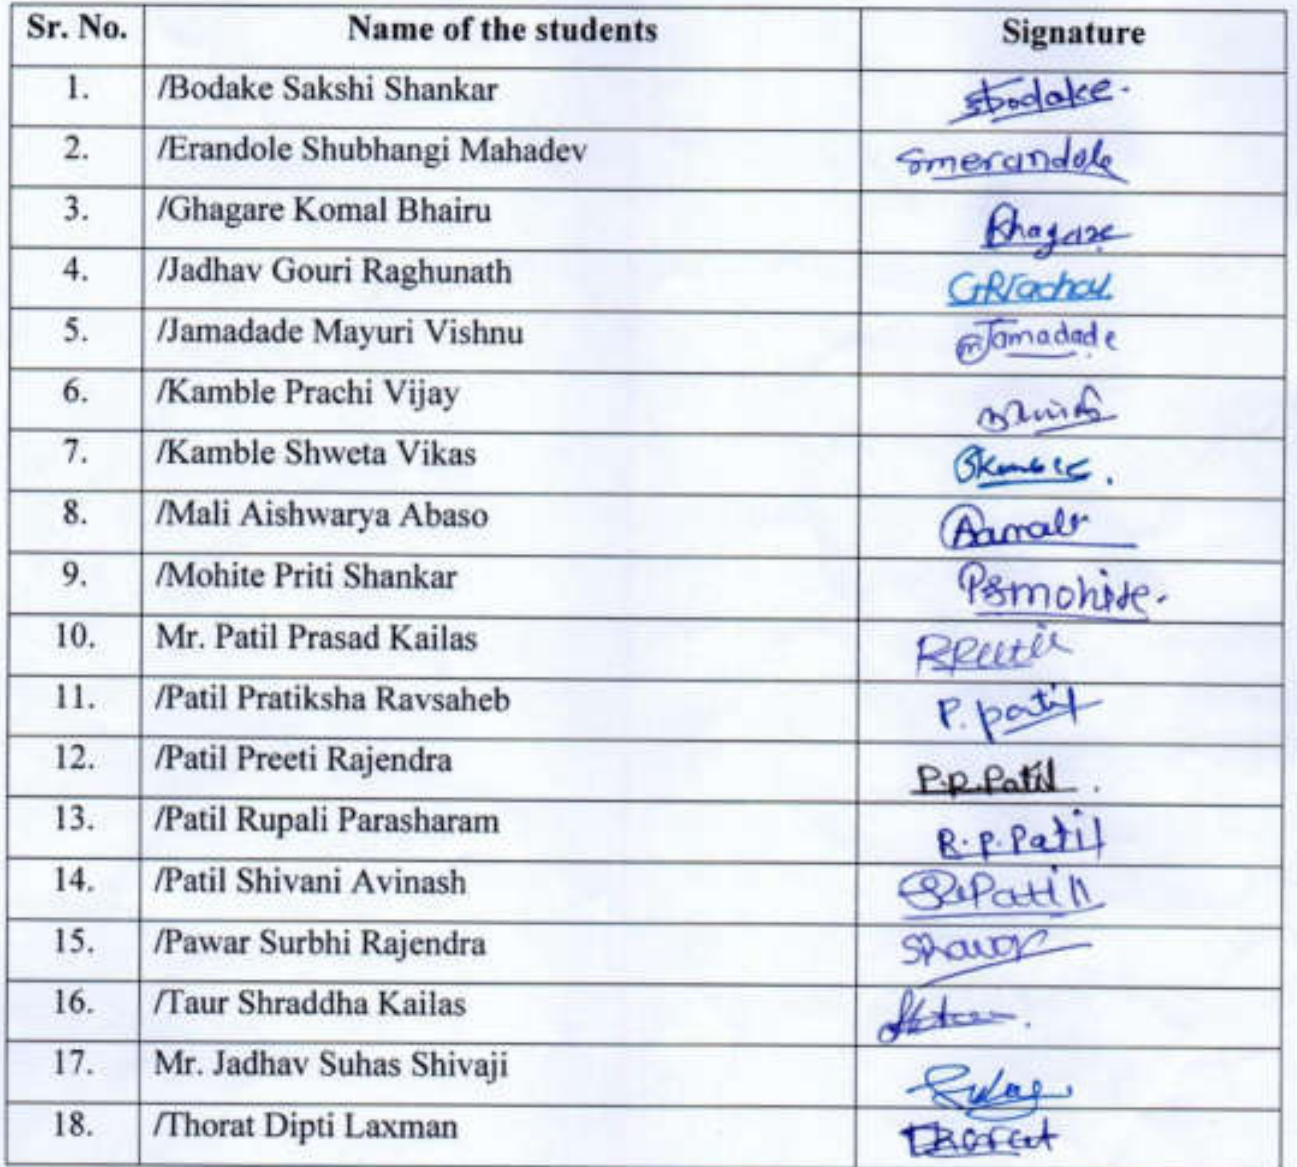 Sr. No. Name of the students Signature
1. /Bodake Sakshi Shankar sbodake.
2. /Erandole Shubhangi Mahadev smerandole
3. /Ghagare Komal Bhairu
4. /Jadhav Gouri Raghunath GRJadhav.
5. /Jamadade Mayuri Vishnu mJamadade
6. /Kamble Prachi Vijay
7. /Kamble Shweta Vikas SKamble.
8. /Mali Aishwarya Abaso Aamali
9. /Mohite Priti Shankar Psmohite.
10. Mr. Patil Prasad Kailas
11. /Patil Pratiksha Ravsaheb P. patil
12. /Patil Preeti Rajendra P.R.Patil.
13. /Patil Rupali Parasharam R.P.Patil
14. /Patil Shivani Avinash
15. /Pawar Surbhi Rajendra
16. /Taur Shraddha Kailas
17. Mr. Jadhav Suhas Shivaji
18. /Thorat Dipti Laxman Thorat